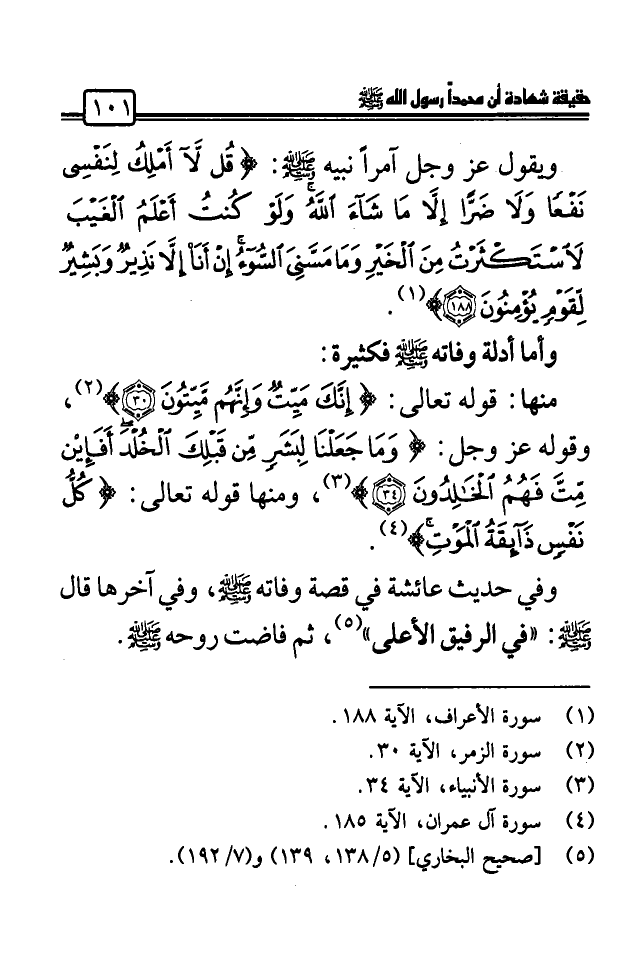 حقيقة شهادة أن محمداً رسول الله ﷺ
١٠١
ويقول عز وجل آمراً نبيه ﷺ: ﴿ قُل لَّآ أَمْلِكُ لِنَفْسِى
نَفْعًا وَلَا ضَرًّا إِلَّا مَا شَآءَ ٱللَّهُ ۚ وَلَوْ كُنتُ أَعْلَمُ ٱلْغَيْبَ
لَٱسْتَكْثَرْتُ مِنَ ٱلْخَيْرِ وَمَا مَسَّنِىَ ٱلسُّوٓءُ ۚ إِنْ أَنَا۠ إِلَّا نَذِيرٌ وَبَشِيرٌ
لِّقَوْمٍ يُؤْمِنُونَ ١٨٨ ﴾(١).
وأما أدلة وفاته ﷺ فكثيرة:
منها: قوله تعالى: ﴿ إِنَّكَ مَيِّتٌ وَإِنَّهُم مَّيِّتُونَ ٣٠ ﴾(٢)،
وقوله عز وجل: ﴿ وَمَا جَعَلْنَا لِبَشَرٍ مِّن قَبْلِكَ ٱلْخُلْدَ ۖ أَفَإِي۟ن
مِّتَّ فَهُمُ ٱلْخَـٰلِدُونَ ٣٤ ﴾(٣)، ومنها قوله تعالى: ﴿ كُلُّ
نَفْسٍ ذَآئِقَةُ ٱلْمَوْتِ ۗ ﴾(٤).
وفي حديث عائشة في قصة وفاته ﷺ، وفي آخرها قال
ﷺ: «في الرفيق الأعلى»(٥)، ثم فاضت روحه ﷺ.
(١) سورة الأعراف، الآية ١٨٨.
(٢) سورة الزمر، الآية ٣٠.
(٣) سورة الأنبياء، الآية ٣٤.
(٤) سورة آل عمران، الآية ١٨٥.
(٥) [صحيح البخاري] (١٣٨/٥، ١٣٩) و(١٩٢/٧).